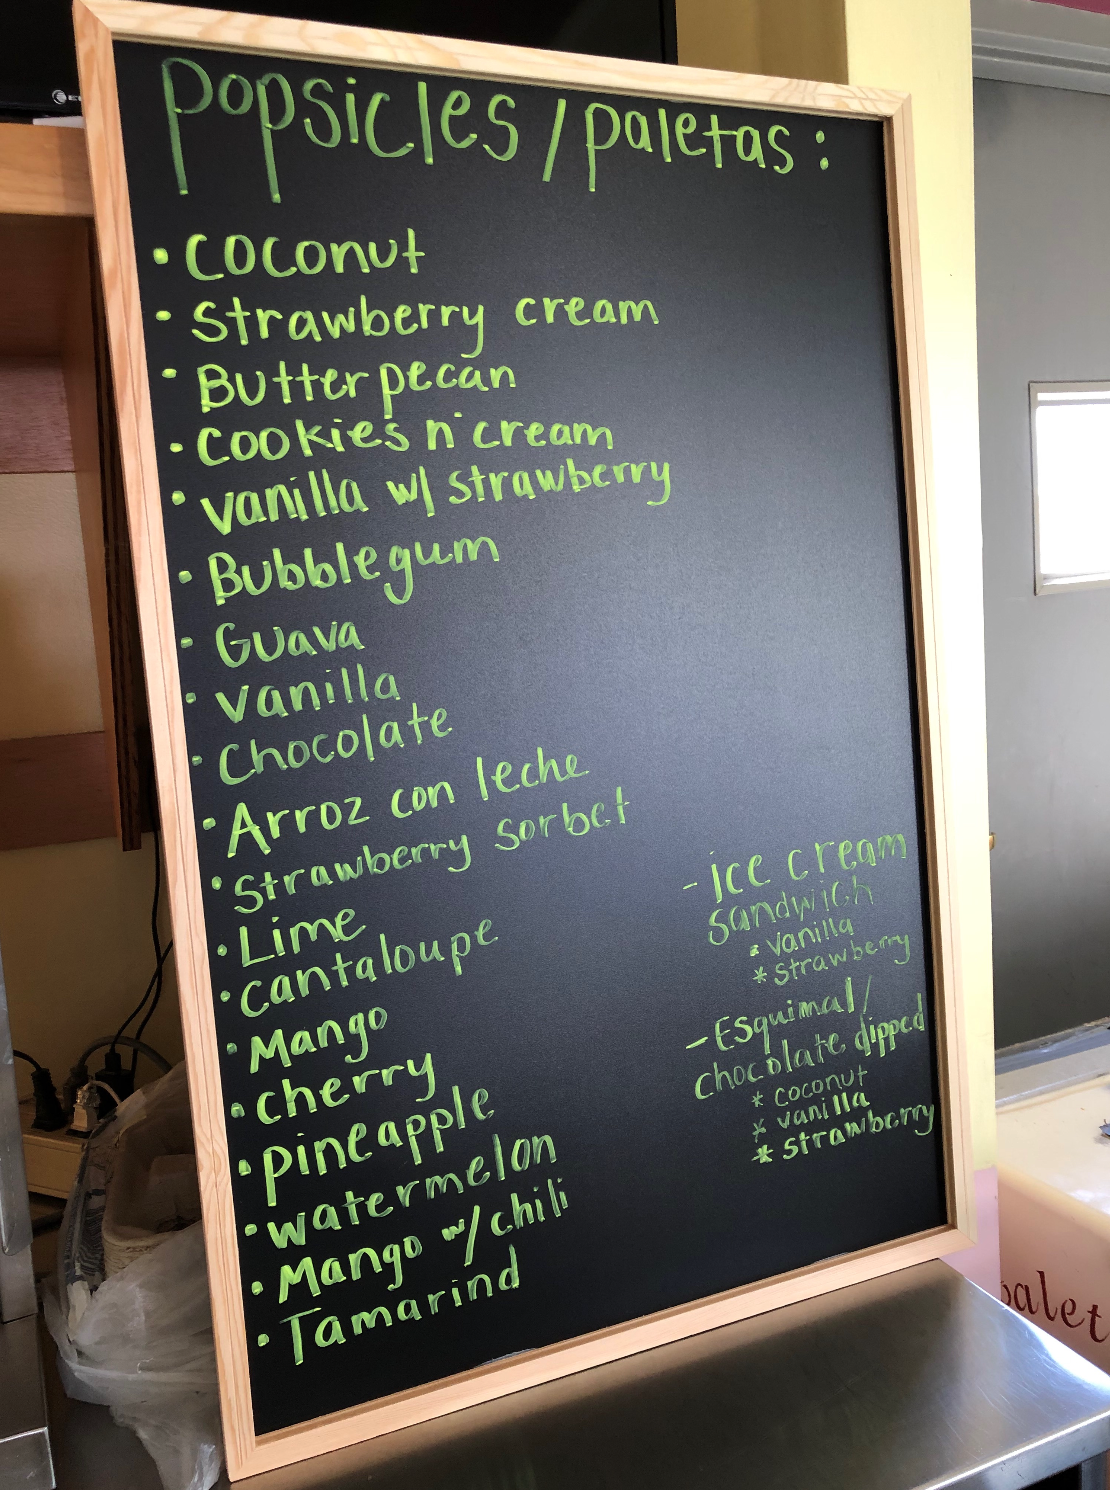 Popsicles / paletas :
• Coconut
• Strawberry cream
• Butter pecan
• Cookies n' cream
• vanilla w/ strawberry
• Bubblegum
• Guava
• vanilla
• Chocolate
• Arroz con leche
• Strawberry sorbet
• Lime
• cantaloupe
• Mango
• cherry
• pineapple
• watermelon
• Mango w/ chili
• Tamarind
- ice cream
sandwich
* vanilla
* strawberry
- Esquimal/
chocolate dipped
* coconut
* vanilla
* strawberry